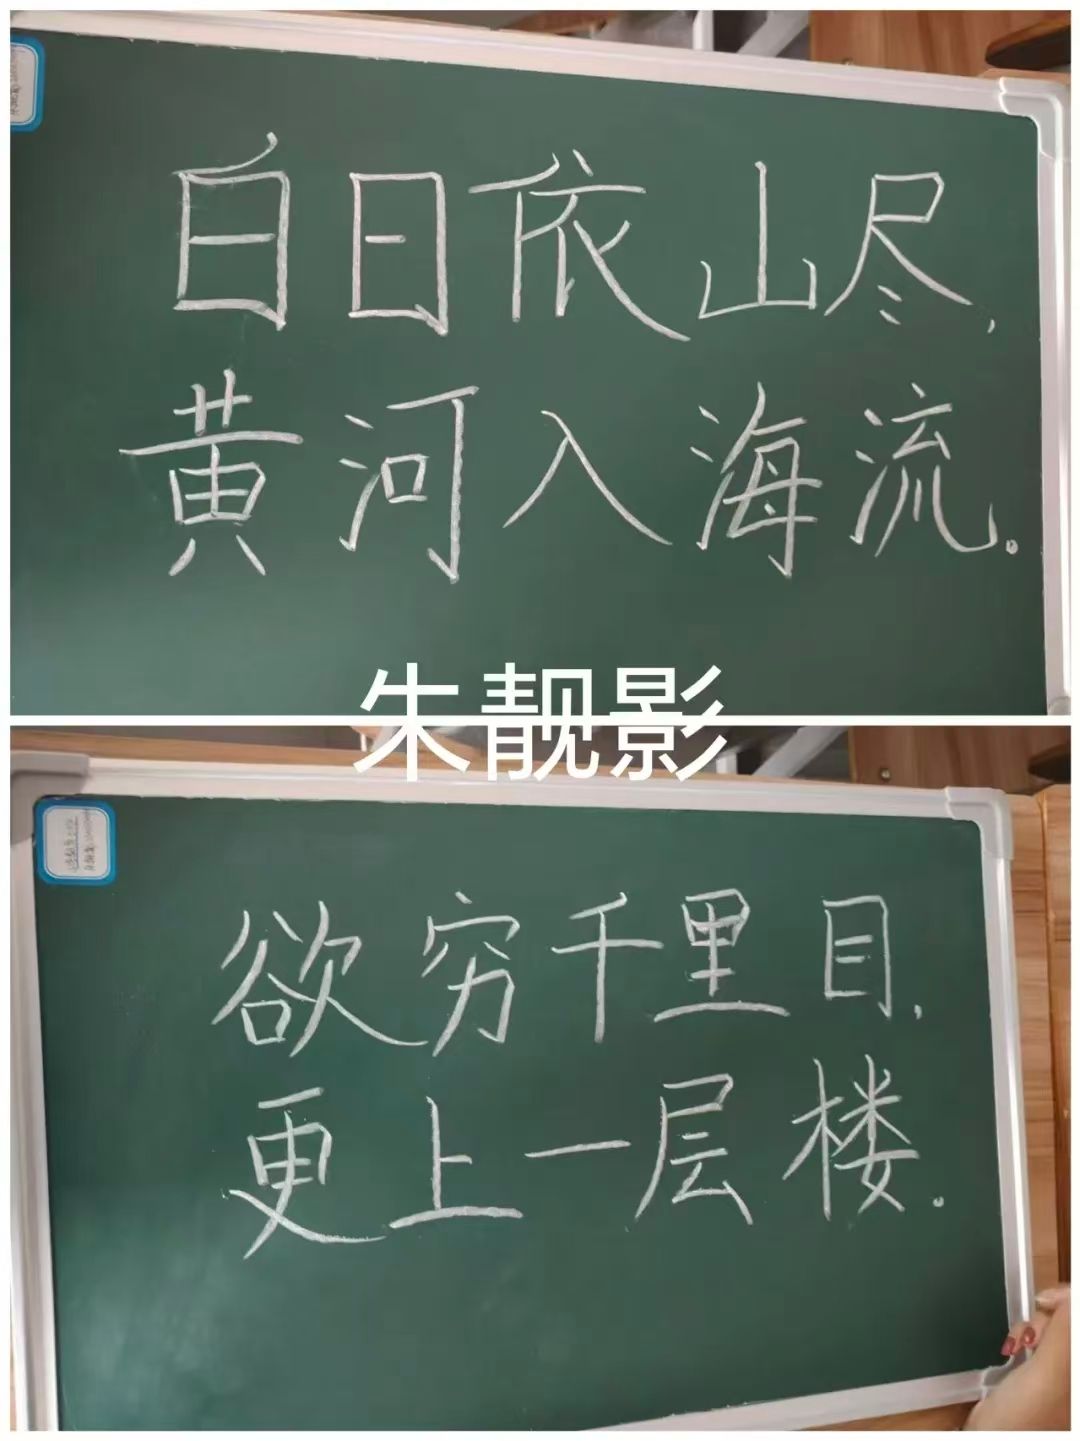 白日依山尽,
黄河入海流.
朱靓影
欲穷千里目,
更上一层楼.